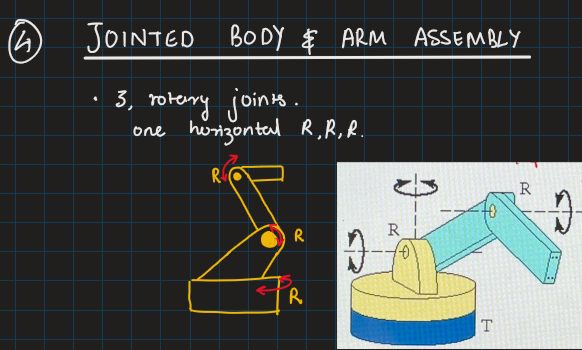 4
JOINTED BODY & ARM ASSEMBLY
· 3, rotary joints.
one horizontal R,R,R.
R
R
R
R
R
T